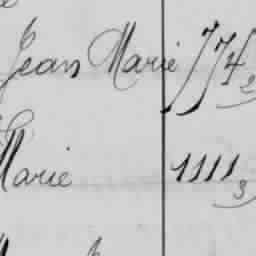 Jean Marie 774 2
Marie 1111 3